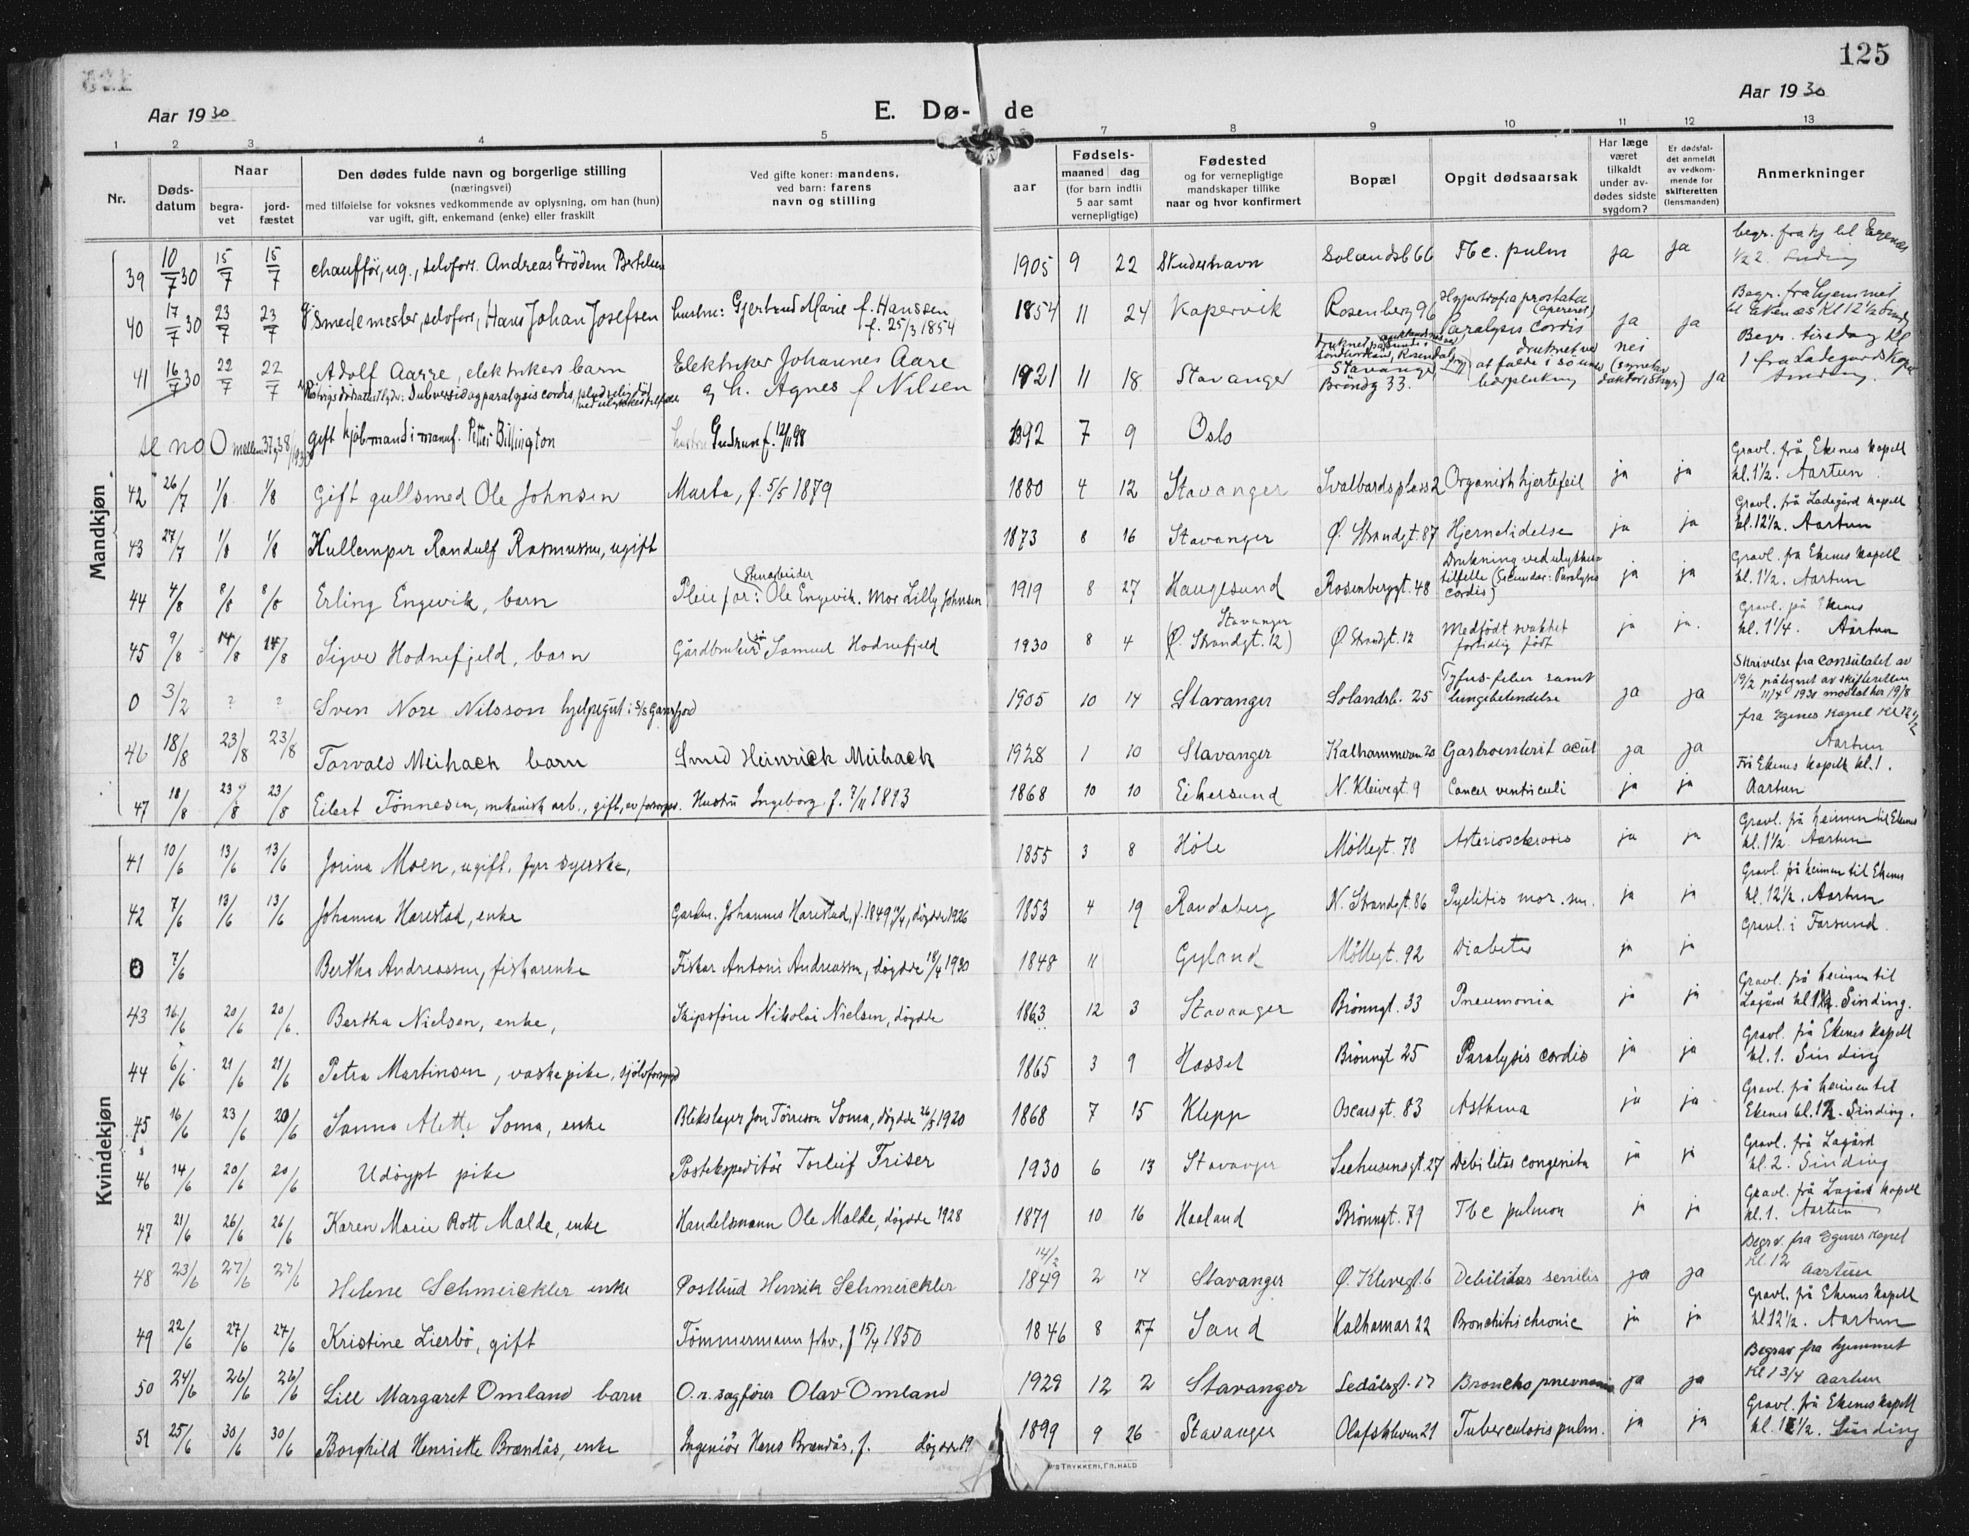 125
Aar 1930
E. Dø- de
Aar 1930
1 2 3 4 5 7 8 9 10 11 12 13
Nr.
Døds-
datum
Naar
begra-
vet
jord-
fæstet
Den dødes fulde navn og borgerlige stilling
(næringsvei)
med tilføielse for voksnes vedkommende av oplysning, om han (hun)
var ugift, gift, enkemand (enke) eller fraskilt
Ved gifte koner: mandens,
ved barn: farens
navn og stilling
aar
Fødsels-
maaned dag
(for barn indtil
5 aar samt
vernepligtige)
Fødested
og for vernepligtige
mandskaper tillike
naar og hvor konfirmert
Bopæl
Opgit dødsaarsak
Har læge
været
tilkaldt
under av-
dødes sidste
sygdom?
Er dødsfal-
det anmeldt
av vedkom-
mende for
skifteretten
(lensmanden)
Anmerkninger
Mandkjøn
39 10/7 30 15/7 15/7 chaufför, ug., selvfors. Andreas Grödem Bertelsen 1905 9 22 Skudeshavn Solandsb 66 Tbc. pulm ja ja
40 17/7 30 23/7 23/7 Smedemester, selvfors, Hans Johan Josefsen hustru: Gjertrud Marie f. Hanssen f. 25/3 1854 1854 11 24 Kopervik Rosenberg 96 Hypertrofia prostata (opereret) Paralysis cordis ja ja Begr. fra hjemmet
41 16/7 30 22/7 22/7 Adolf Aarre, elektrikers barn Elektriker Johannes Aare
& h. Agnes f Nilsen 1921 11 18 Stavanger Stavanger, Bröndg 33. nei ja Begr. tirsdag kl 1 fra Ladegaards Kapel Sinding.
se no 0 mellem 37 & 38 gift kjöbmand i manuf. Petter Billington hustru Gudrun f. 12/11 98 1892 7 9 Oslo
42 26/7 1/8 1/8 Gift gullsmed Ole Johnsen Marta, f. 5/5 1879 1880 4 12 Stavanger Svalbardsplass 2 Organisk hjertefeil ja ja Gravl. frå Ekenes kapell kl. 1½. Aartun
43 27/7 1/8 1/8 Kullemper Randulf Rasmussen, ugift 1873 8 16 Stavanger Ø. Strandgt. 87 Hjernelidelse ja ja Gravl. frå Ladegård kapell kl. 12½. Aartun
44 4/8 8/8 8/8 Erling Engevik, barn Pleiefar: Stenarbeider Ole Engevik. Mor Lilly Johnsen 1919 8 27 Haugesund Rosenberggt. 48 Drukning ved ulykkes-
tilfelle (Secundær: Paralysis cordis) ja ja Gravl. fra Ekenes kapell kl. 1½. Aartun
45 9/8 14/8 14/8 Sigve Hodnefjeld, barn Gårdbruker Samuel Hodnefjeld 1930 8 4 Stavanger (Ø. Strandgt. 12) Ø. Strandgt. 12 Medfödt svakhet fortidlig födt ja ja. Gravl. på Ekenes kl. 1¼. Aartun
0 3/2 ? ? Sven Nore Nilsson hjelpegut i S/S Garsfjord 1905 10 14 Stavanger Solandsb. 25 Tyfus-feber samt lungebetendelse ja ja Skrivelse fra consulatet av 19/2 påtegnet av skifteretten 11/4 1930 modtat her 19/8
46 18/8 23/8 23/8 Torvald Meihack barn Smed Heinrick Meihack 1928 1 10 Stavanger Kalhammeren 20 Gastroenterit acut ja ja fra Egenes Kapel Kl 12½ Aartun
47 18/8 23/8 23/8 Eilert Tönnesen, mekanisk arb., gift, Hustru Ingeborg f. 7/11 1873 1868 10 10 Eikersund N. Kleivegt. 9 Cancer ventriculi ja ja Frå Ekenes kapell kl. 1. Aartun
Kvindekjøn
41 10/6 13/6 13/6 Jorina Moen, ugift, fyrr syerske, 1855 3 8 Höle Möllegt. 78 Arteriosclerosis ja ja Gravl. frå heimen til Ekenes kl. 1½. Aartun
42 7/6 13/6 13/6 Johanna Harestad, enke Gardm. Johannes Harestad, f. 1849, döydde 1926 1853 4 19 Randaberg N. Strandgt. 86 Pyelitis mor. sen. ja ja Gravl. frå heimen til Ekenes kl. 12½. Aartun
0 7/6 Bertha Andreassen, fiskarenke Fiskar Antoni Andreassen, döydde 18/4 1930 1848 11 Gyland Möllegt. 92 Diabetes ja ja Gravl. i Farsund.
43 16/6 20/6 20/6. Bertha Nielsen, enke, Skipsförar Nikolai Nielsen, döydde 1863 12 3 Stavanger Brönngt. 33 Pneumonia ja ja Gravl. frå heimen til Lagård kl. 1½. Sinding.
44 6/6 21/6 21/6 Petra Martinsen, vaskepike, sjölvforsyrgd 1865 3 9 Hasset Brönngt 25 Paralysis cordis ja ja Gravl. frå Ekenes kapell kl. 1. Sinding
45 16/6 23/6 20/6 Sanna Alette Soma, enke Blikslager Jon Tönneson Soma, döydde 26/5 1920 1868 7 15 Klepp Oscarsgt. 83 Asthma ja ja Gravl. frå heimen til Ekenes kl. 1½. Sinding.
46 14/6 20/6 20/6 Udöypt pike Postekspeditör Torleif Friser 1930 6 13 Stavanger Seehusensgt. 27 Debilitas congenita ja ja Gravl. frå Lagård kl. 2. Sinding
47 21/6 26/6 26/6 Karen Marie Rott Malde, enke Handelsmann Ole Malde, döydde 1928 1871 10 16 Haaland Brönngt. 79 Tbc pulmon ja ja Gravl. frå Lagård kapell kl. 1. Aartun
48 23/6 27/6 27/6 Helene Schmeickler enke Postbud Henrik Schmeickler 14/2 1849 2 14 Stavanger Ø. Klevegt. 6 Debilitas senilis ja ja Begrav. fra Egenes Kapel Kl. 12 Aartun
49 22/6 27/6 27/6 Kristine Lierbö, gift Tömmermann fhv. f 15/4 1850 1846 8 27 Sand Kalhamar 22 Bronchitis chronic ja ja Gravl. frå Ekenes kapell kl 12½. Aartun
50 24/6 26/6 26/6 Lill Margaret Omland barn O.r.sagförer Olav Omland 1929 12 2 Stavanger Ledålsgt. 17 Bronchopnevmonia ja ja Begrav fra hjemmet Kl 1 3/4 Aartun
51 25/6 30/6 30/6 Borghild Henriette Brændås, enke Ingeniör Hans Brændås, f. döydde 19 1899 9 26 Stavanger Olafskleven 21 Tuberculosis pulm. ja ja Gravl. frå Ekenes kapell kl. 1½. Sinding
TRYKKERI, FR. HALD